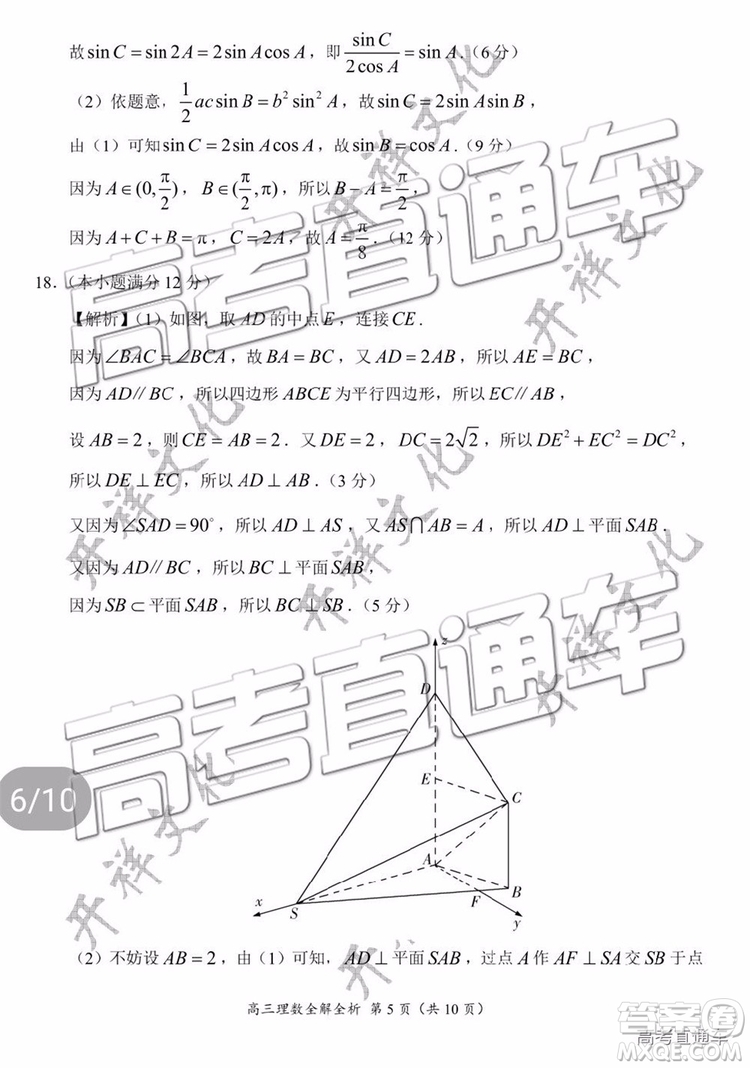 故sin C = sin 2A = 2sin A cos A，即 sin C / 2cos A = sin A．(6分)
（2）依题意，1/2 ac sin B = b² sin² A，故sin C = 2sin A sin B，
由（1）可知sin C = 2sin A cos A，故sin B = cos A．(9分)
因为A∈(0, π/2)，B∈(π/2, π)，所以B − A = π/2，
因为A + C + B = π，C = 2A，故A = π/8．(12分)
18．（本小题满分12分）
【解析】（1）如图，取AD的中点E，连接CE．
因为∠BAC = ∠BCA，故BA = BC，又AD = 2AB，所以AE = BC，
因为AD∥BC，所以四边形ABCE为平行四边形，所以EC∥AB，
设AB = 2，则CE = AB = 2．又DE = 2，DC = 2√2，所以DE² + EC² = DC²，
所以DE ⊥ EC，所以AD ⊥ AB．(3分)
又因为∠SAD = 90°，所以AD ⊥ AS，又AS∩AB = A，所以AD ⊥平面SAB．
又因为AD∥BC，所以BC ⊥平面SAB，
因为SB ⊂平面SAB，所以BC ⊥ SB．(5分)
z
D
E
C
A
B
F
x
S
y
6/10
（2）不妨设AB = 2，由（1）可知，AD ⊥平面SAB，过点A作AF ⊥ SA交SB于点
高三理数全解全析 第5页（共10页）
高考直通车
高考直通车
开祥文化
开祥文化
开祥文化
开祥文化
开祥文化
开祥文化
答案圈
高考直通车
MXQE.COM